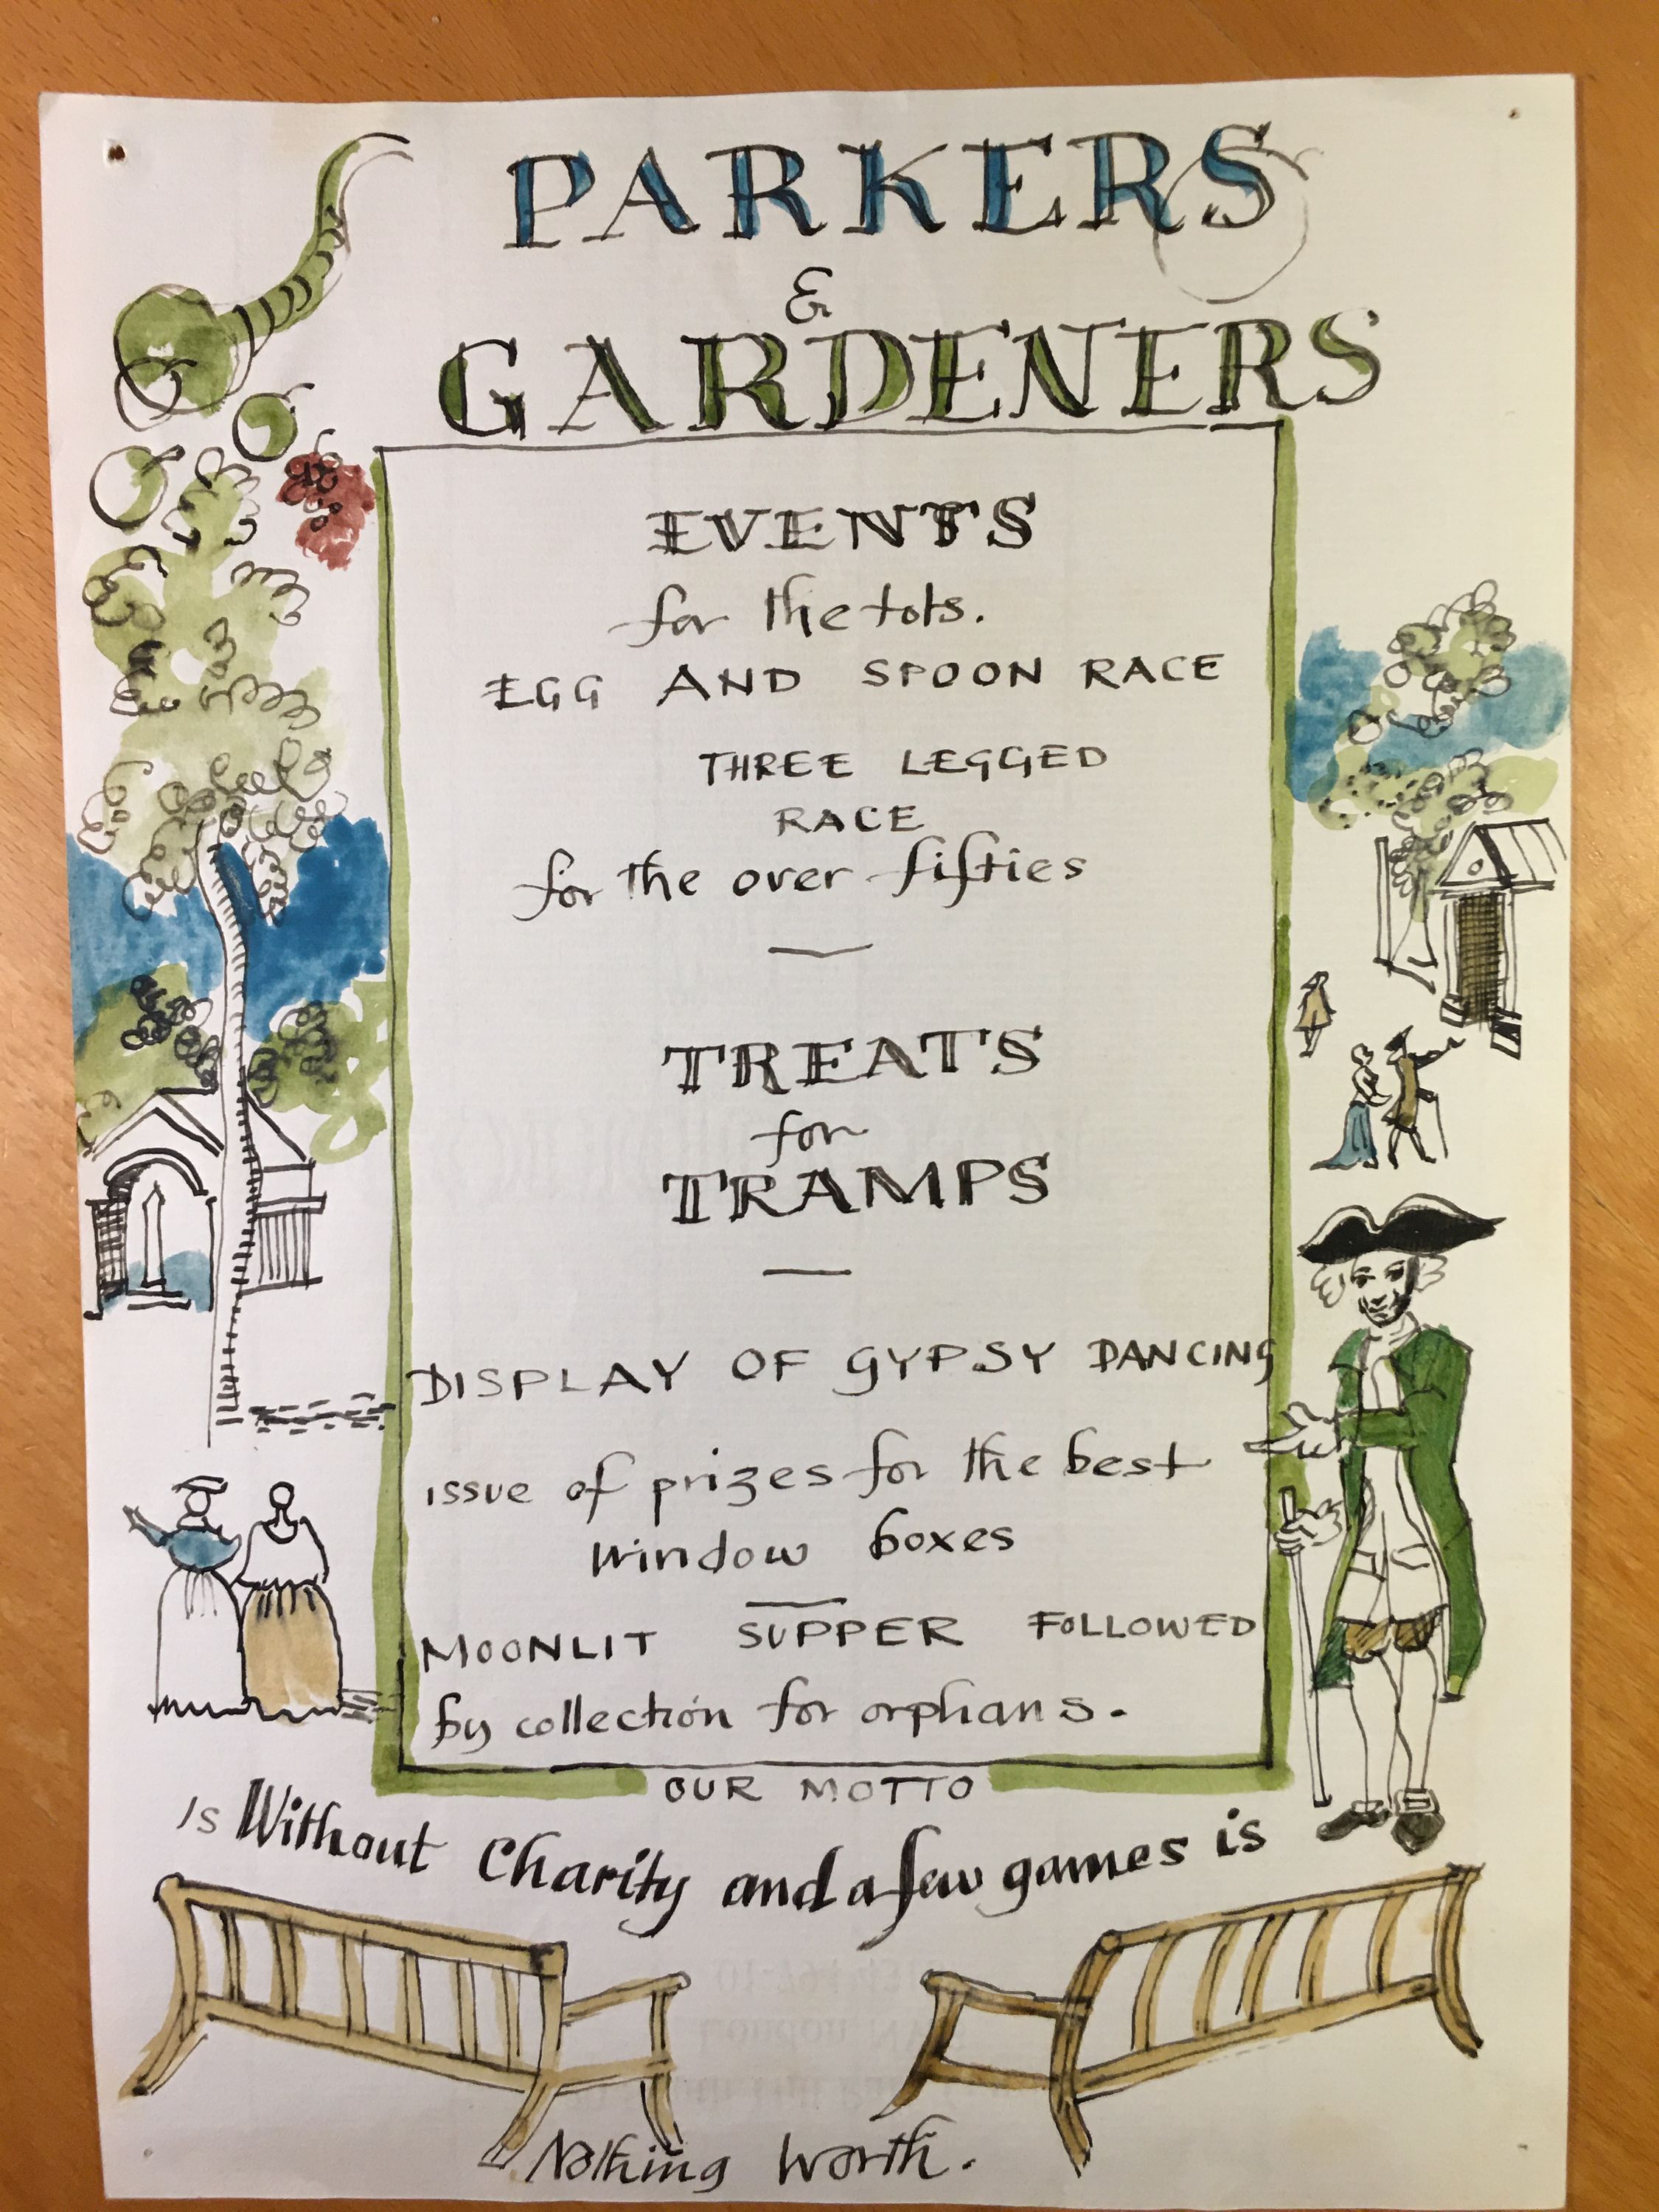 PARKERS
&
GARDENERS
EVENTS
for the tots.
EGG AND SPOON RACE
THREE LEGGED
RACE
for the over fifties
TREATS
for
TRAMPS
DISPLAY OF GYPSY DANCING
issue of prizes for the best
window boxes
MOONLIT SUPPER FOLLOWED
by collection for orphans.
OUR MOTTO
Is Without Charity and a few games is
Nothing Worth.